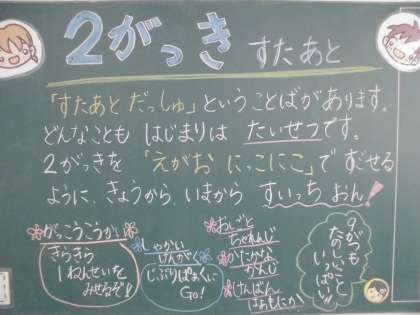 2がっき すたあと
「すたあと だっしゅ」ということばがあります。
どんなことも はじまりは たいせつです。
2がっきを 「えがお にっこにこ」で すごせる
ように、きょうから、いまから すいっち おん!
がっこうこうかい
きらきら
1ねんせいを
みせるぞ!
しゃかい
けんがく
じぶりぱあくに
Go!
おしごと
ちゃれんじ
かにかよ
かんじ
けんばん
はあもにか!
9がつも
たのしいこと
いっぱい!!